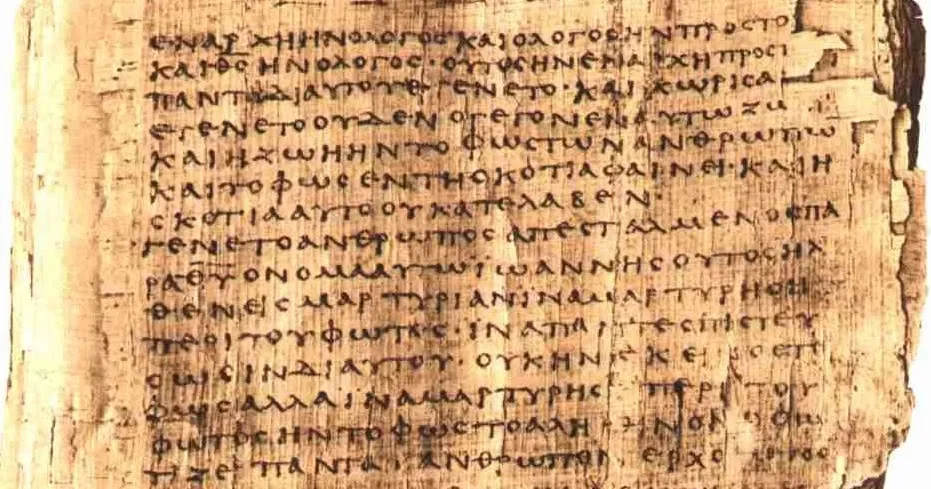 ΕΝ ΑΡΧΗ ΗΝ Ο ΛΟΓΟΣ ΚΑΙ Ο ΛΟΓΟΣ ΗΝ ΠΡΟΣ ΤΟ
ΚΑΙ ΘΣ ΗΝ Ο ΛΟΓΟΣ · ΟΥΤΟΣ ΗΝ ΕΝ ΑΡΧΗ ΠΡΟΣ
ΠΑΝΤΑ ΔΙ ΑΥΤΟΥ ΕΓΕΝΕΤΟ · ΚΑΙ ΧΩΡΙΣ Α
ΕΓΕΝΕΤΟ ΟΥΔΕΝ Ο ΓΕΓΟΝΕΝ ΑΥΤΩ ΖΩ
ΚΑΙ Η ΖΩΗ ΗΝ ΤΟ ΦΩΣ ΤΩΝ ΑΝΘΡΩΠΩ
ΚΑΙ ΤΟ ΦΩΣ ΕΝ ΤΗ ΣΚΟΤΙΑ ΦΑΙΝΕΙ · ΚΑΙ Η
ΣΚΟΤΙΑ ΑΥΤΟ ΟΥ ΚΑΤΕΛΑΒΕΝ ·
ΓΕΝΕΤΟ ΑΝΘΡΩΠΟΣ ΑΠΕΣΤΑΛΜΕΝΟΣ ΠΑ
ΡΑ ΘΥ ΟΝΟΜΑ ΑΥΤΩ ΙΩΑΝΝΗΣ ΟΥΤΟΣ ΗΛ
ΘΕΝ ΕΙΣ ΜΑΡΤΥΡΙΑΝ ΙΝΑ ΜΑΡΤΥΡΗΣΗ
ΠΕΡΙ ΤΟΥ ΦΩΤΟΣ · ΙΝΑ ΠΑΝΤΕΣ ΠΙΣΤΕΥ
ΣΩΣΙΝ ΔΙ ΑΥΤΟΥ · ΟΥΚ ΗΝ ΕΚΕΙΝΟΣ ΕΤ
ΦΩΣ ΑΛΛΑ ΙΝΑ ΜΑΡΤΥΡΗΣ ΠΕΡΙ ΤΟΥ
ΦΩΤΟΣ ΗΝ ΤΟ ΦΩΣ ΤΟ ΑΛΗ
ΤΙΖΕΙ ΠΑΝΤΑ ΑΝΘΡΩΠΟΝ ΕΡΧΟ